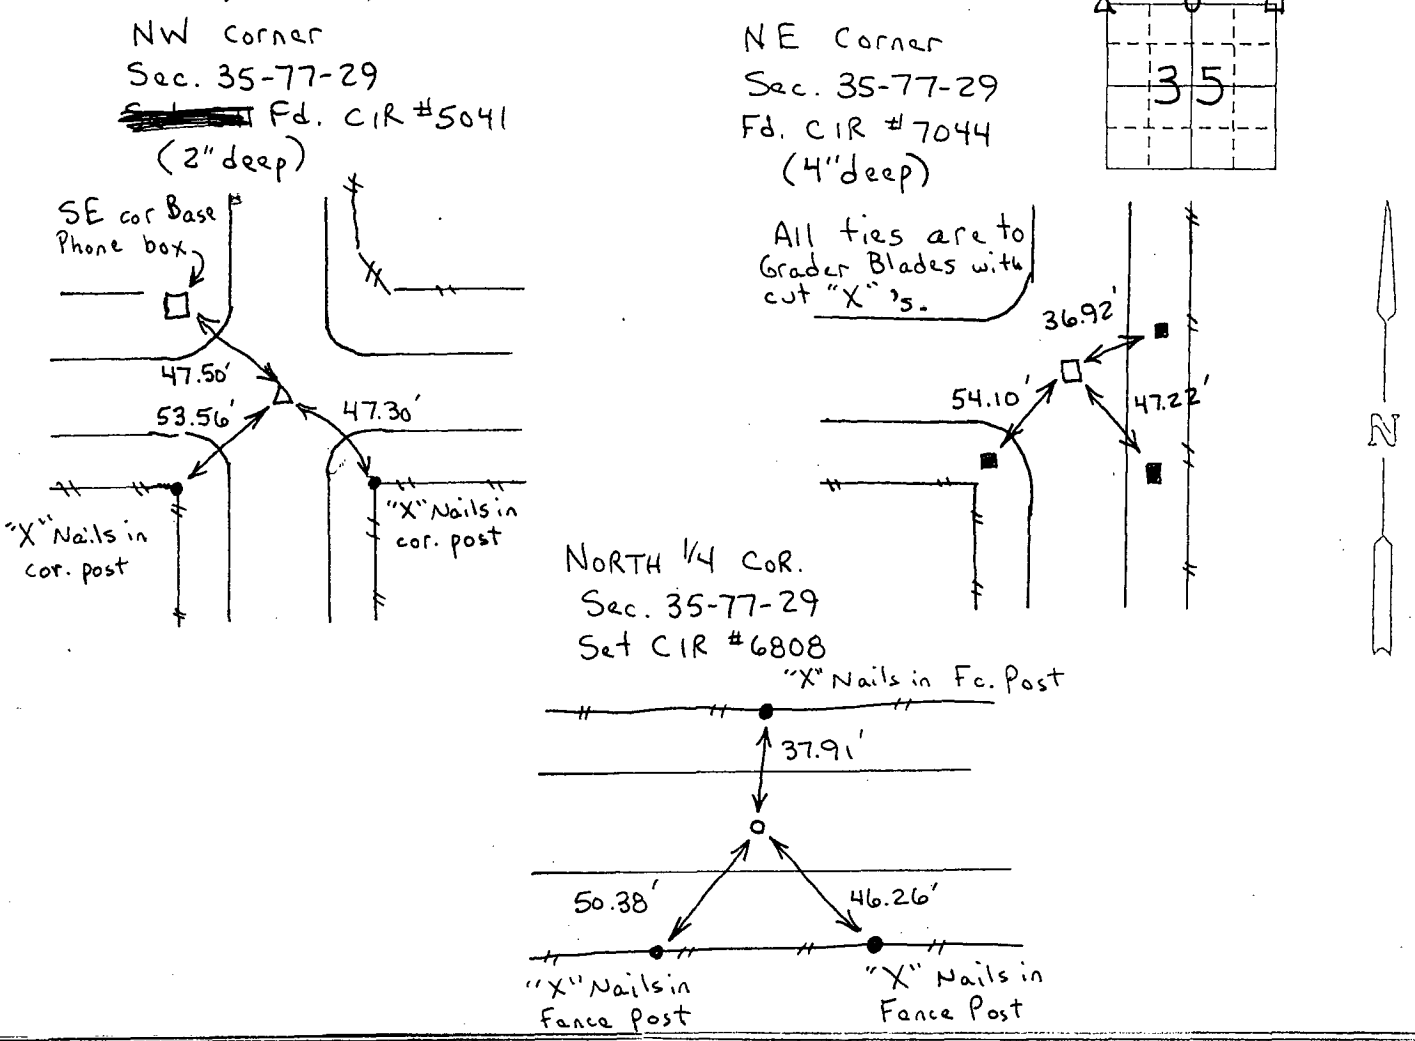 NW Corner
Sec. 35-77-29
Fd. CIR #5041
(2" deep)
SE cor Base
Phone box
47.50'
53.56'
47.30'
"X" Nails in
cor. post
"X" Nails in
cor. post
NE Corner
Sec. 35-77-29
Fd. CIR #7044
(4" deep)
35
All ties are to
Grader Blades with
cut "X" 's.
36.92'
54.10'
47.22'
N
NORTH 1/4 COR.
Sec. 35-77-29
Set CIR #6808
"X" Nails in Fc. Post
37.91'
50.38'
46.26'
"X" Nails in
Fence Post
"X" Nails in
Fence Post